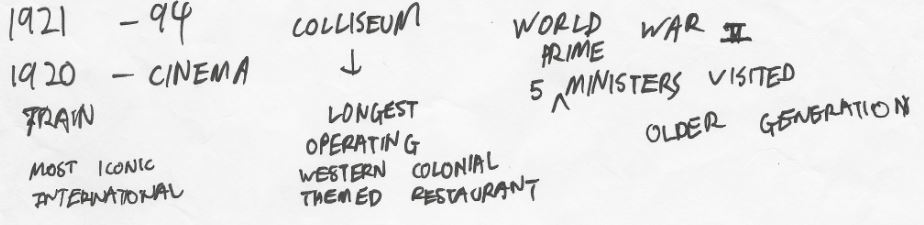 1921 - 94
1920 - CINEMA
TRAIN
MOST ICONIC
INTERNATIONAL
COLLISEUM
↓
LONGEST
OPERATING
WESTERN COLONIAL
THEMED RESTAURANT
WORLD WAR II
PRIME
5 ^ MINISTERS VISITED
OLDER GENERATION